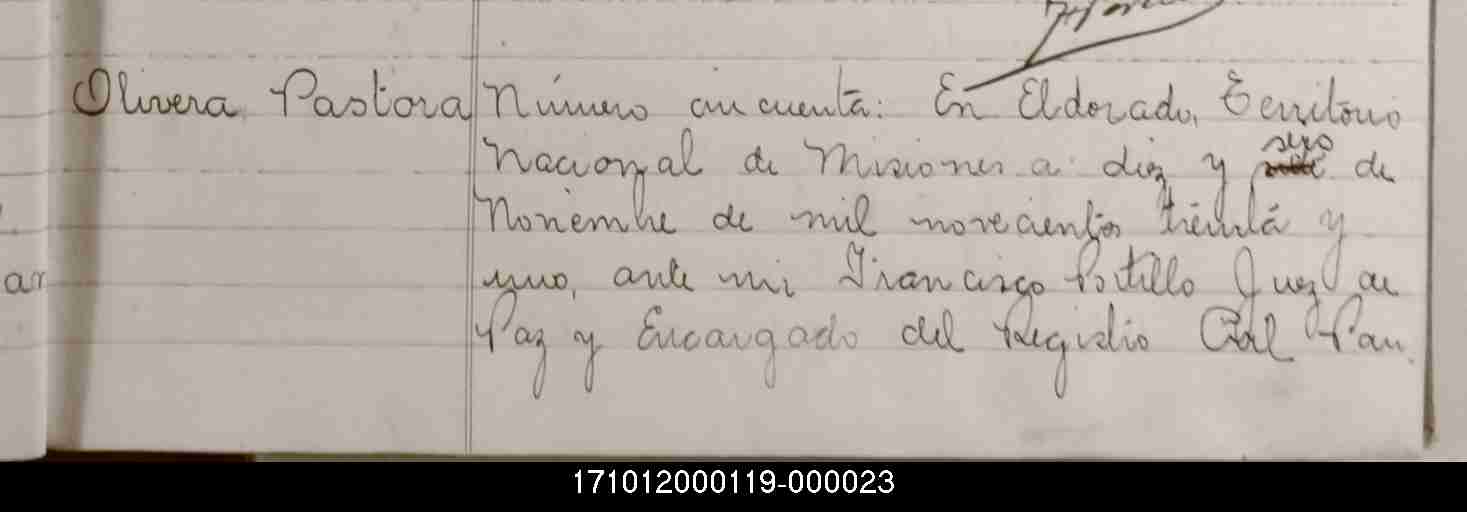 Olivera Pastora
Número cincuenta: En Eldorado, Territorio
Nacional de Misiones a diez y seis de
Noviembre de mil novecientos treinta y
uno, ante mi Francisco Portillo Juez de
Paz y Encargado del Registro Civil Pan
ar
171012000119-000023